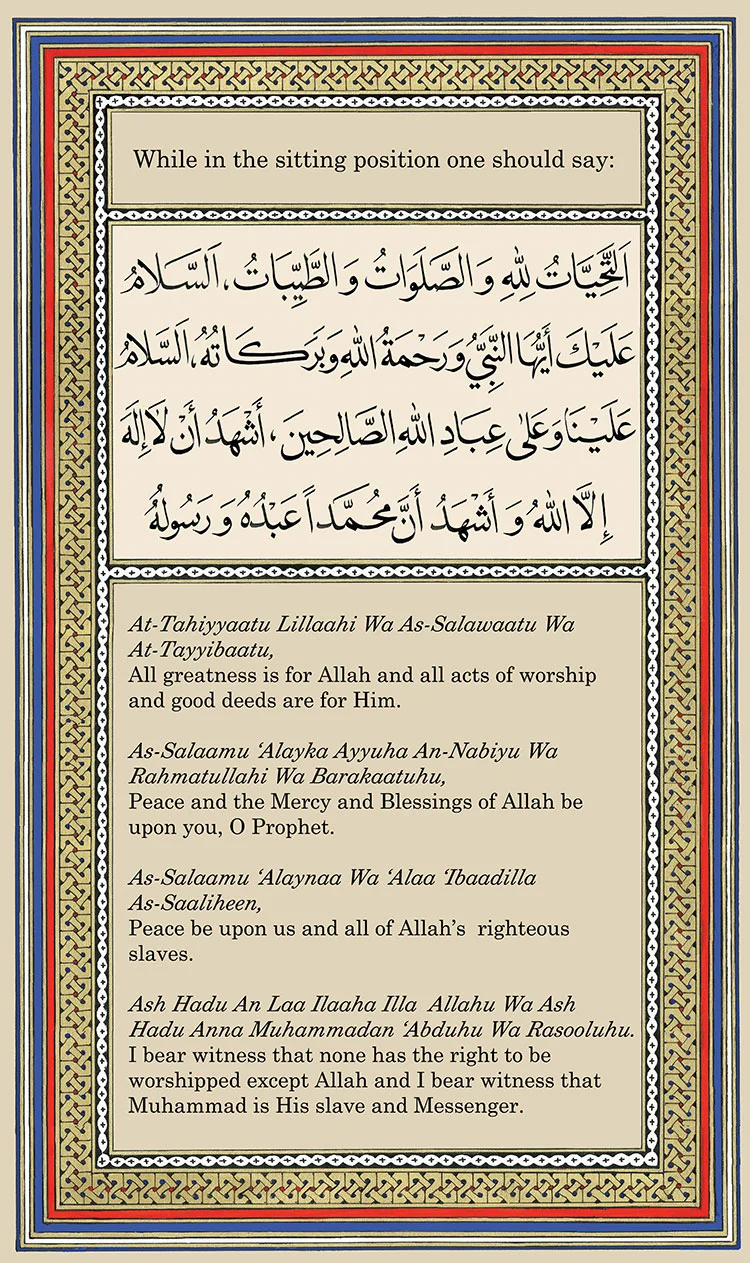 While in the sitting position one should say:
اَلتَّحِيَّاتُ لِلّٰهِ وَ الصَّلَوَاتُ وَ الطَّيِّبَاتُ، اَلسَّلَامُ
عَلَيْكَ أَيُّهَا النَّبِيُّ وَ رَحْمَةُ اللهِ وَبَرَكَاتُهُ، اَلسَّلَامُ
عَلَيْنَا وَعَلىٰ عِبَادِ اللهِ الصَّالِحِينَ، أَشْهَدُ أَنْ لَا إِلٰهَ
إِلَّا اللهُ وَ أَشْهَدُ أَنَّ مُحَمَّداً عَبْدُهُ وَ رَسُولُهُ
At-Tahiyyaatu Lillaahi Wa As-Salawaatu Wa
At-Tayyibaatu,
All greatness is for Allah and all acts of worship
and good deeds are for Him.
As-Salaamu ‘Alayka Ayyuha An-Nabiyu Wa
Rahmatullahi Wa Barakaatuhu,
Peace and the Mercy and Blessings of Allah be
upon you, O Prophet.
As-Salaamu ‘Alaynaa Wa ‘Alaa ‘Ibaadilla
As-Saaliheen,
Peace be upon us and all of Allah’s righteous
slaves.
Ash Hadu An Laa Ilaaha Illa Allahu Wa Ash
Hadu Anna Muhammadan ‘Abduhu Wa Rasooluhu.
I bear witness that none has the right to be
worshipped except Allah and I bear witness that
Muhammad is His slave and Messenger.